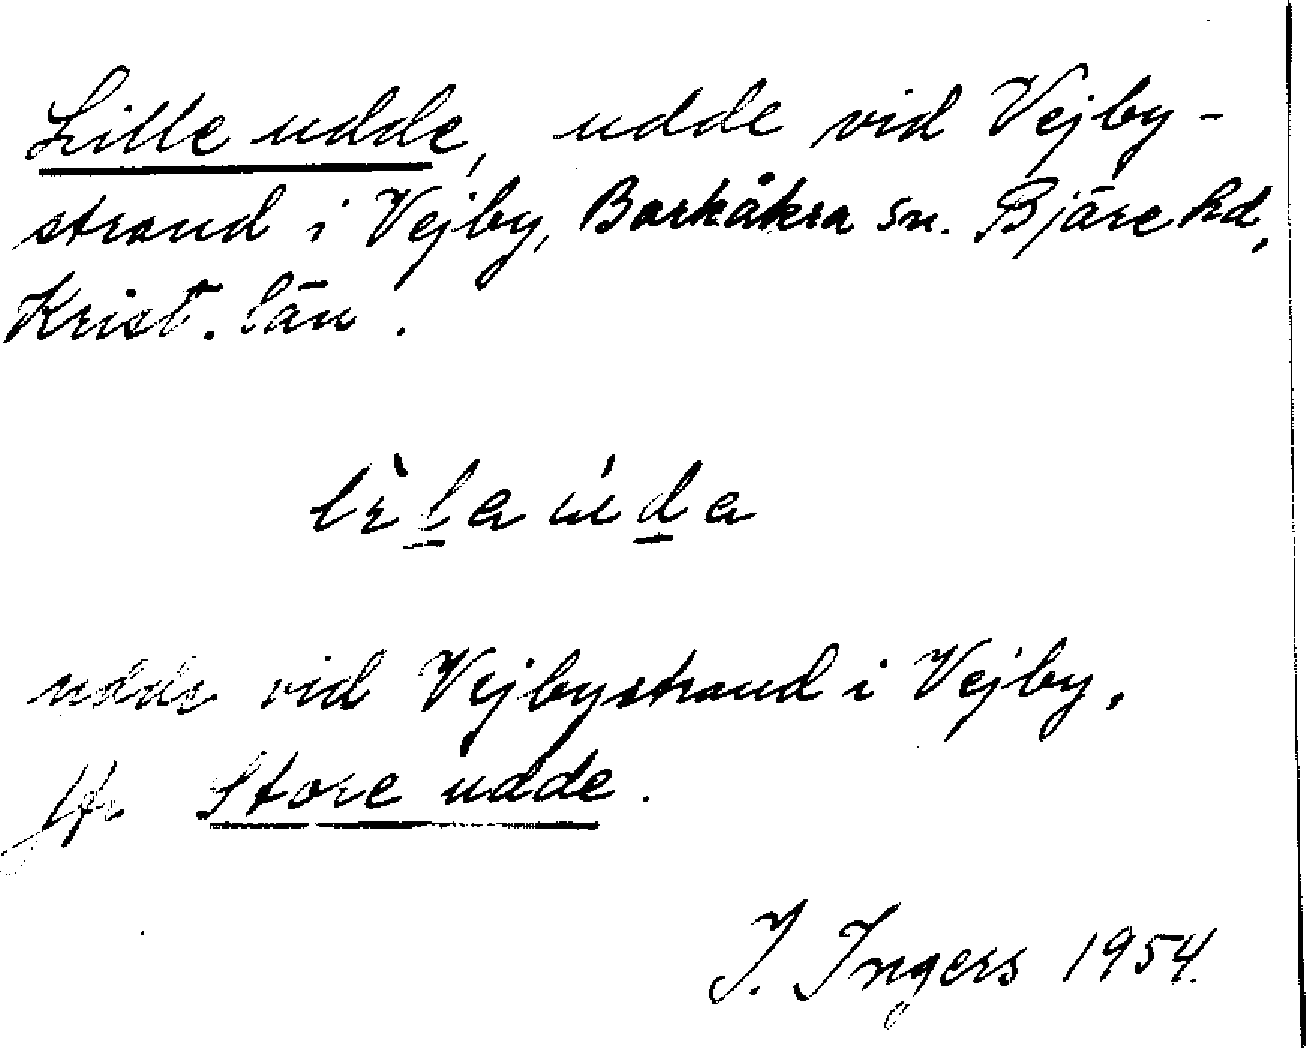 Lille udde, udde vid Vejby-
strand i Vejby, Barkåkra sn. Bjäre hd,
Krist. län.
lɛ̀l̲a úd̲a
udde vid Vejbystrand i Vejby.
Jfr Store udde.
I. Ingers 1954.